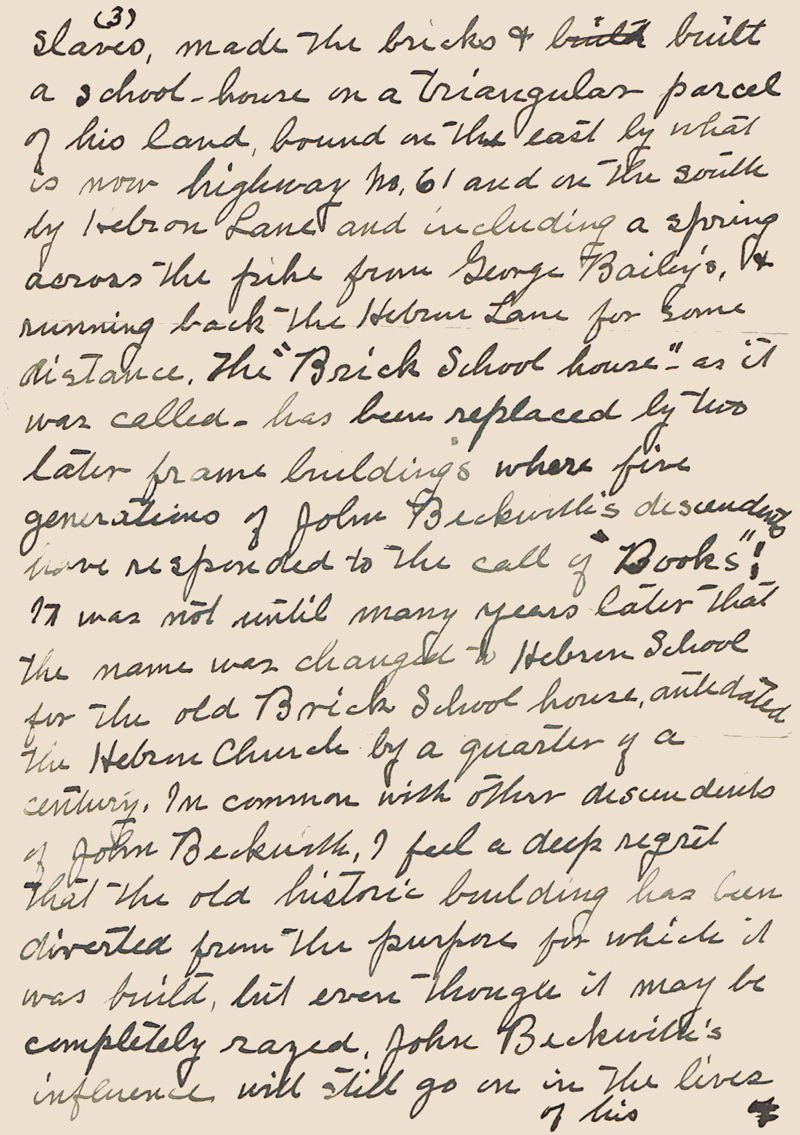 (3)
slaves, made the bricks & build built
a school-house on a triangular parcel
of his land, bound on the east by what
is now highway No. 61 and on the south
by Hebron Lane and including a spring
across the pike from George Bailey's, &
running back the Hebron Lane for some
distance. The "Brick School house" - as it
was called - has been replaced by two
later frame buildings where five
generations of John Beckwith's descendents
have responded to the call of "Books"!
It was not until many years later that
the name was changed to Hebron School
for the old Brick School house, antedated
the Hebron Church by a quarter of a
century. In common with other descendents
of John Beckwith, I feel a deep regret
that the old historic building has been
diverted from the purpose for which it
was built, but even though it may be
completely razed, John Beckwith's
influence will still go on in the lives
of his